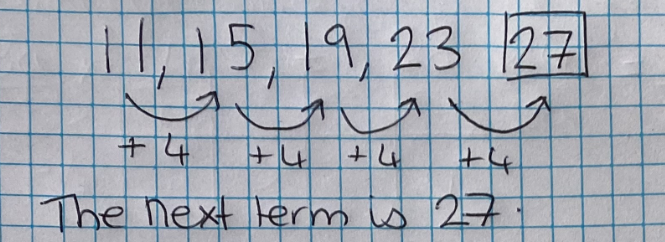 11, 15, 19, 23 27
+ 4 + 4 + 4 + 4
The next term is 27.